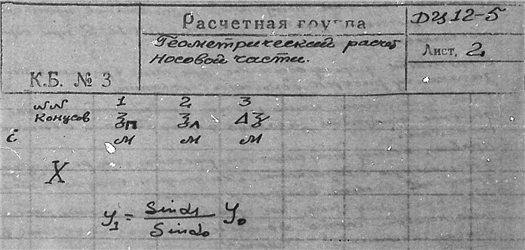 Расчетная группа
ДЦ 12-5
Геометрический расчет
носовой части.
Лист. 2
К.Б. № 3
№№ 1 2 3
Конусов ξп ξл Δξ
м м м
X
y₁ = Sinα₁ / Sinα₀ y₀